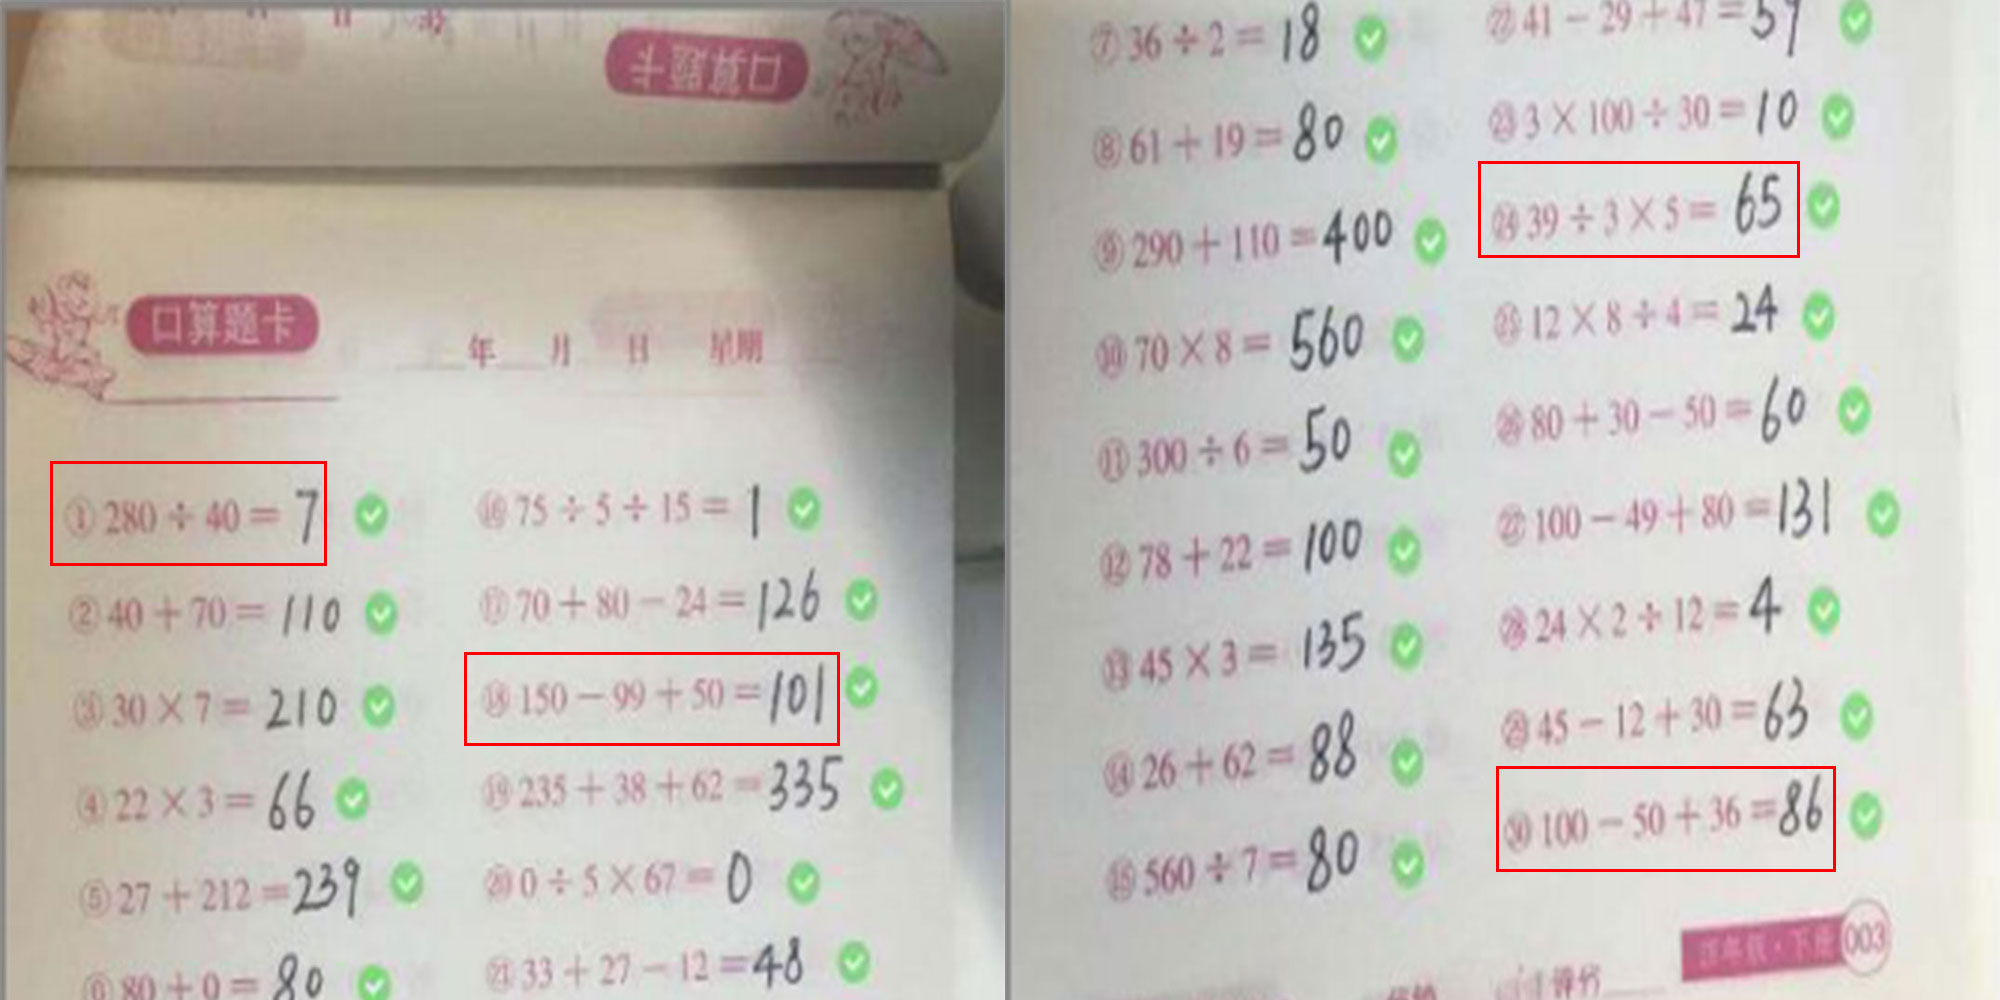 口算题卡
口算题卡
年 月 日 星期
① 280 ÷ 40 = 7
② 40 + 70 = 110
③ 30 × 7 = 210
④ 22 × 3 = 66
⑤ 27 + 212 = 239
⑥ 80 + 0 = 80
⑯ 75 ÷ 5 ÷ 15 = 1
⑰ 70 + 80 − 24 = 126
⑱ 150 − 99 + 50 = 101
⑲ 235 + 38 + 62 = 335
⑳ 0 ÷ 5 × 67 = 0
㉑ 33 + 27 − 12 = 48
⑦ 36 ÷ 2 = 18
⑧ 61 + 19 = 80
⑨ 290 + 110 = 400
⑩ 70 × 8 = 560
⑪ 300 ÷ 6 = 50
⑫ 78 + 22 = 100
⑬ 45 × 3 = 135
⑭ 26 + 62 = 88
⑮ 560 ÷ 7 = 80
㉒ 41 − 29 + 47 = 59
㉓ 3 × 100 ÷ 30 = 10
㉔ 39 ÷ 3 × 5 = 65
㉕ 12 × 8 ÷ 4 = 24
㉖ 80 + 30 − 50 = 60
㉗ 100 − 49 + 80 = 131
㉘ 24 × 2 ÷ 12 = 4
㉙ 45 − 12 + 30 = 63
㉚ 100 − 50 + 36 = 86
四年级·下册 003